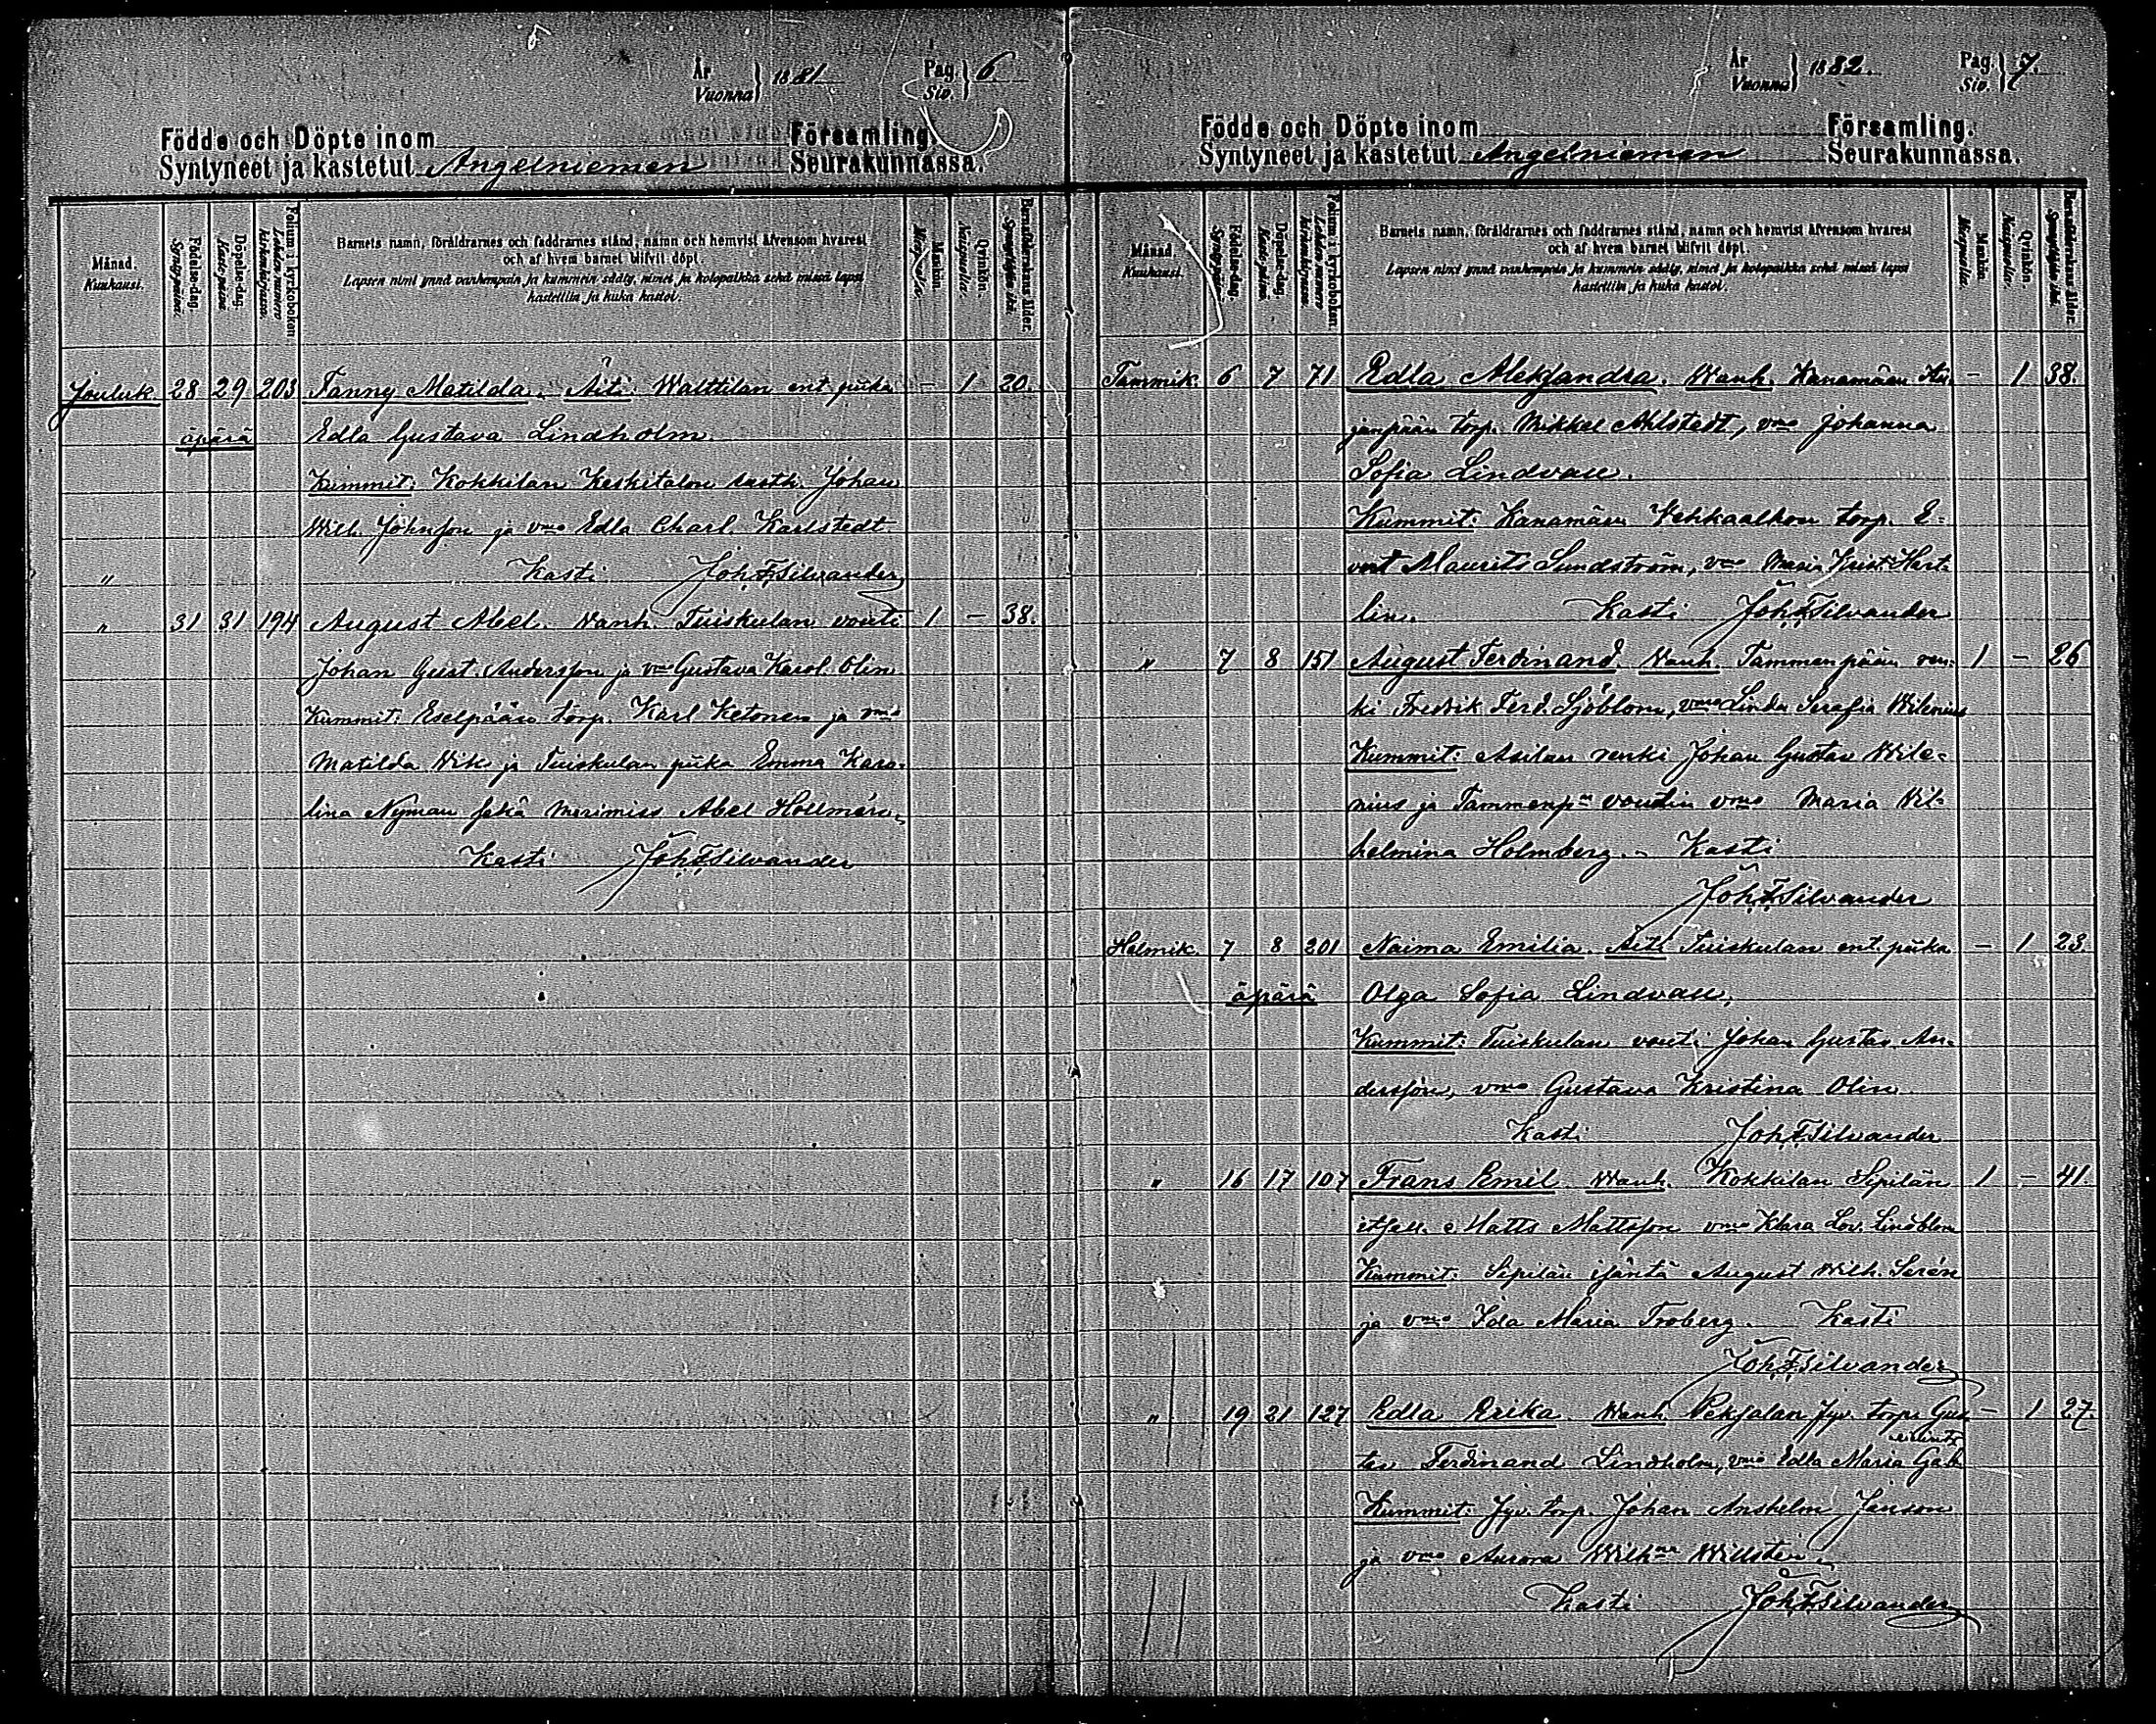 År Vuonna } 1881. Pag. Siv. } 6.
Födde och Döpte inom Församling.
Syntyneet ja kastetut Angelniemen Seurakunnassa.
Månad. Kuukausi.
Födelse-dag. Syntypäivä.
Döpelse-dag. Kaste-päivä.
Folium i kyrkoboken. Lehden numero kirkonkirjassa.
Barnets namn, föräldrarnes och faddrarnes stånd, namn och hemvist äfvensom hvarest
och af hvem barnet blifvit döpt.
Lapsen nimi ynnä vanhempain ja kummein sääty, nimet ja kotopaikka sekä missä lapsi
kastettiin ja kuka kastoi.
Mankön. Miespuolia.
Qvinkön. Naispuolia.
Barnaföderskans ålder. Synnyttäjän ikä.
Jouluk. 28 29 203 Fanny Matilda. Äiti: Walttilan ent. piika – 1 20.
äpärä Edla Gustava Lindholm.
Kummit: Kokkilan Keskitalon Johan
Wilh. Johnsson ja vmo Edla Charl. Karlstedt.
" Kasti Joh. F. Silvander
" 31 31 194 August Abel. Vanh. Tuiskulan vouti 1 – 38.
Johan Gust. Andersson ja vmo Gustava Karol. Olin
Kummit: Eselpään torp. Karl Ketonen ja vmo
Matilda Wik ja Tuiskulan piika Emma Karo-
lina Nyman sekä merimies Abel Hollmén.
Kasti Joh. F. Silvander
År Vuonna } 1882. Pag. Siv. } 7.
Födde och Döpte inom Församling.
Syntyneet ja kastetut Angelniemen Seurakunnassa.
Månad. Kuukausi.
Födelse-dag. Syntypäivä.
Döpelse-dag. Kaste-päivä.
Folium i kyrkoboken. Lehden numero kirkonkirjassa.
Barnets namn, föräldrarnes och faddrarnes stånd, namn och hemvist äfvensom hvarest
och af hvem barnet blifvit döpt.
Lapsen nimi ynnä vanhempain ja kummein sääty, nimet ja kotopaikka sekä missä lapsi
kastettiin ja kuka kastoi.
Mankön. Miespuolia.
Qvinkön. Naispuolia.
Barnaföderskans ålder. Synnyttäjän ikä.
Tammik. 6 7 71 Edla Aleksandra. Vanh. Kanamäen – 1 38.
torp. Mikkel Ahlstedt, vmo Johanna
Sofia Lindvall.
Kummit: Kanamäen Vehkaalhon torp. E-
vert Maurits Sundström, vmo Maria Krist. Hart-
lin. Kasti Joh. F. Silvander
" 7 8 151 August Ferdinand. Vanh. Tammenpään ren- 1 – 26
ki Fredrik Ferd. Sjöblom, vmo Linda Serafia Wilenius
Kummit: Asilan renki Johan Gustav Wile-
nius ja Tammenpn voudin vmo Maria Wil-
helmina Holmberg. Kasti
Joh. F. Silvander
Helmik. 7 8 201 Naima Emilia. Äiti Tuiskulan ent. piika – 1 23.
äpärä Olga Sofia Lindvall,
Kummit: Tuiskulan vouti Johan Gustav An-
dersson, vmo Gustava Kristina Olin.
Kasti Joh. F. Silvander
" 16 17 107 Frans Emil. Vanh. Kokkilan Sipilän 1 – 41.
itsell. Matts Mattsson vmo Klara Lov. Lindblom
Kummit: Sipilän isäntä August Wilh. Serén
ja vmo Ida Maria Froberg. Kasti
Joh. F. Silvander
" 19 21 127 Edla Erika. Vanh. Peksalan Jyv. torp. Gus- – 1 27.
tav Ferdinand Lindholm, vmo Edla Maria Gab.
Kummit: Jyv. torp. Johan Anshelm Janson
ja vmo Aurora Wilhna Willstén
Kasti Joh. F. Silvander